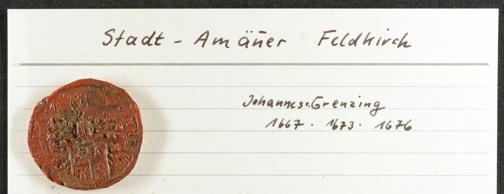 Stadt - Amäñer Feldkirch
Johannes v. Grenzing
1667 . 1673 . 1676